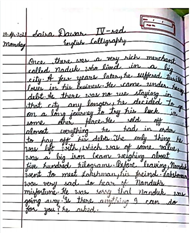 Laiba Dawar IV-red
Monday English Calligraphy
Once there was a very rich merchant
called Naduk who lived in a
city. A few years later, he suffered
loses in his business. He came under heavy
debt. As there was no use staying in
that city any longer, he decided to go
on a long journey to try his luck in
some other place. He sold off
almost everything he had in order
to pay off his debt. The only thing he
was left with, which was of some value,
was a big iron beam weighing about
five hundred kilograms. Before leaving, Nanduk
went to meet Lakshman, his friend. Lakshman
was very sad to hear of Nanduk's
misfortune. He was sorry that Nanduk was
going away. Is there anything I can do
for you? he asked.